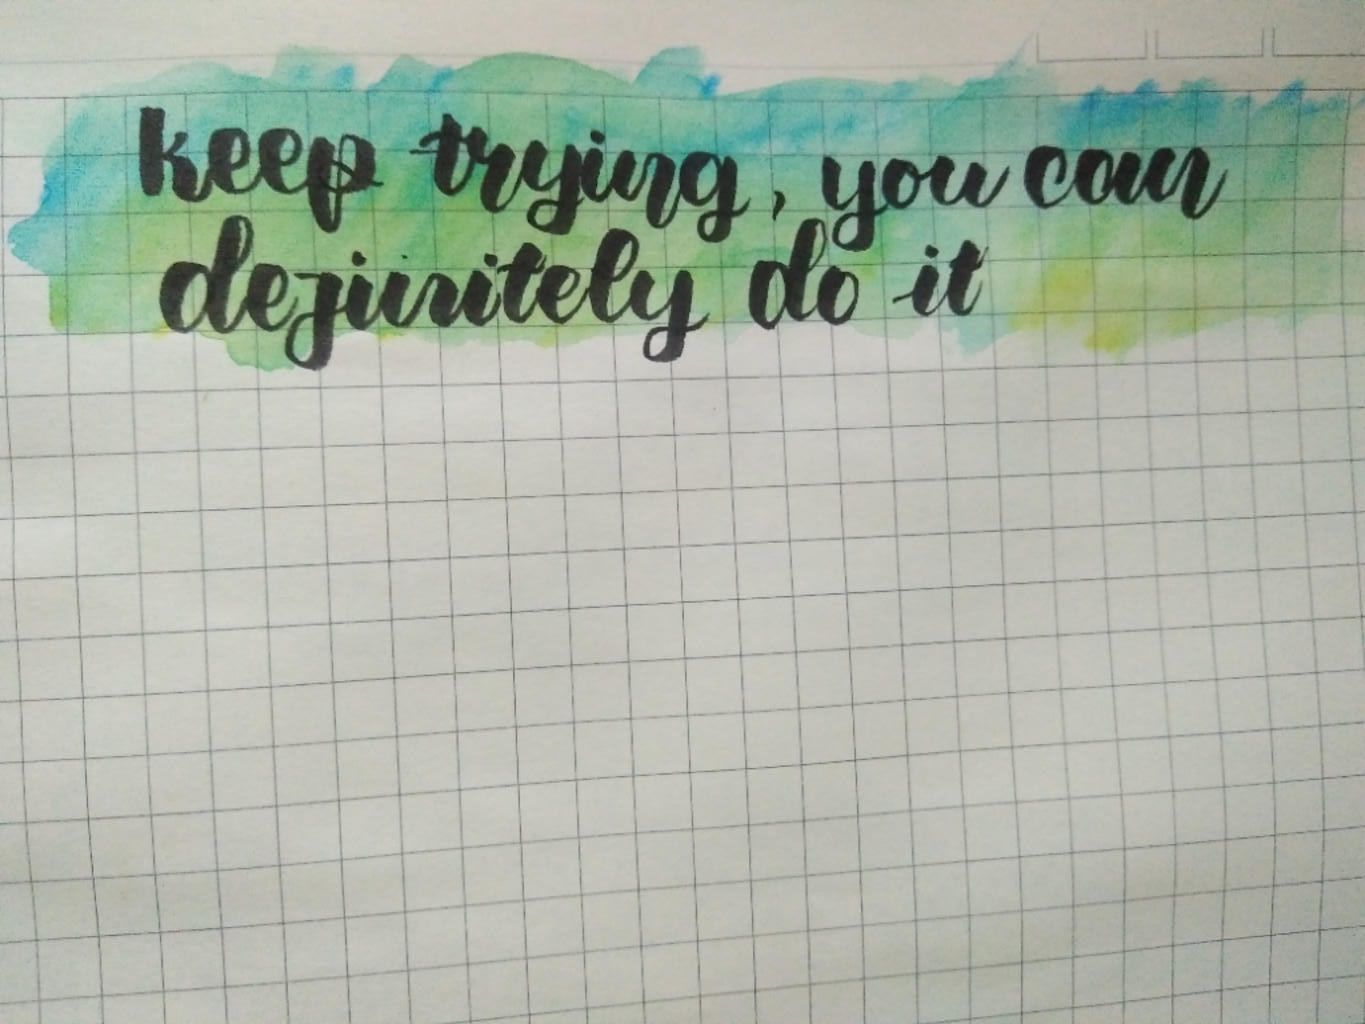 keep trying, you can
definitely do it